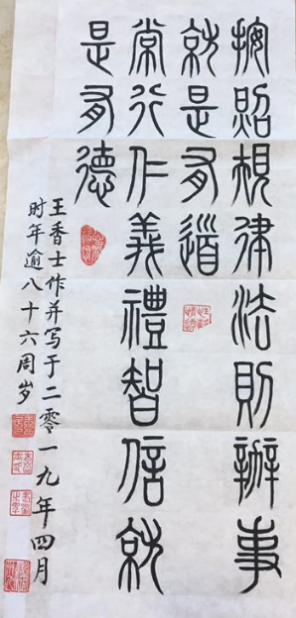 按照规律法則辦事
就是有道
常行仁義禮智信就
是有德
王香士作并写于二零一九年四月
时年逾八十六周岁